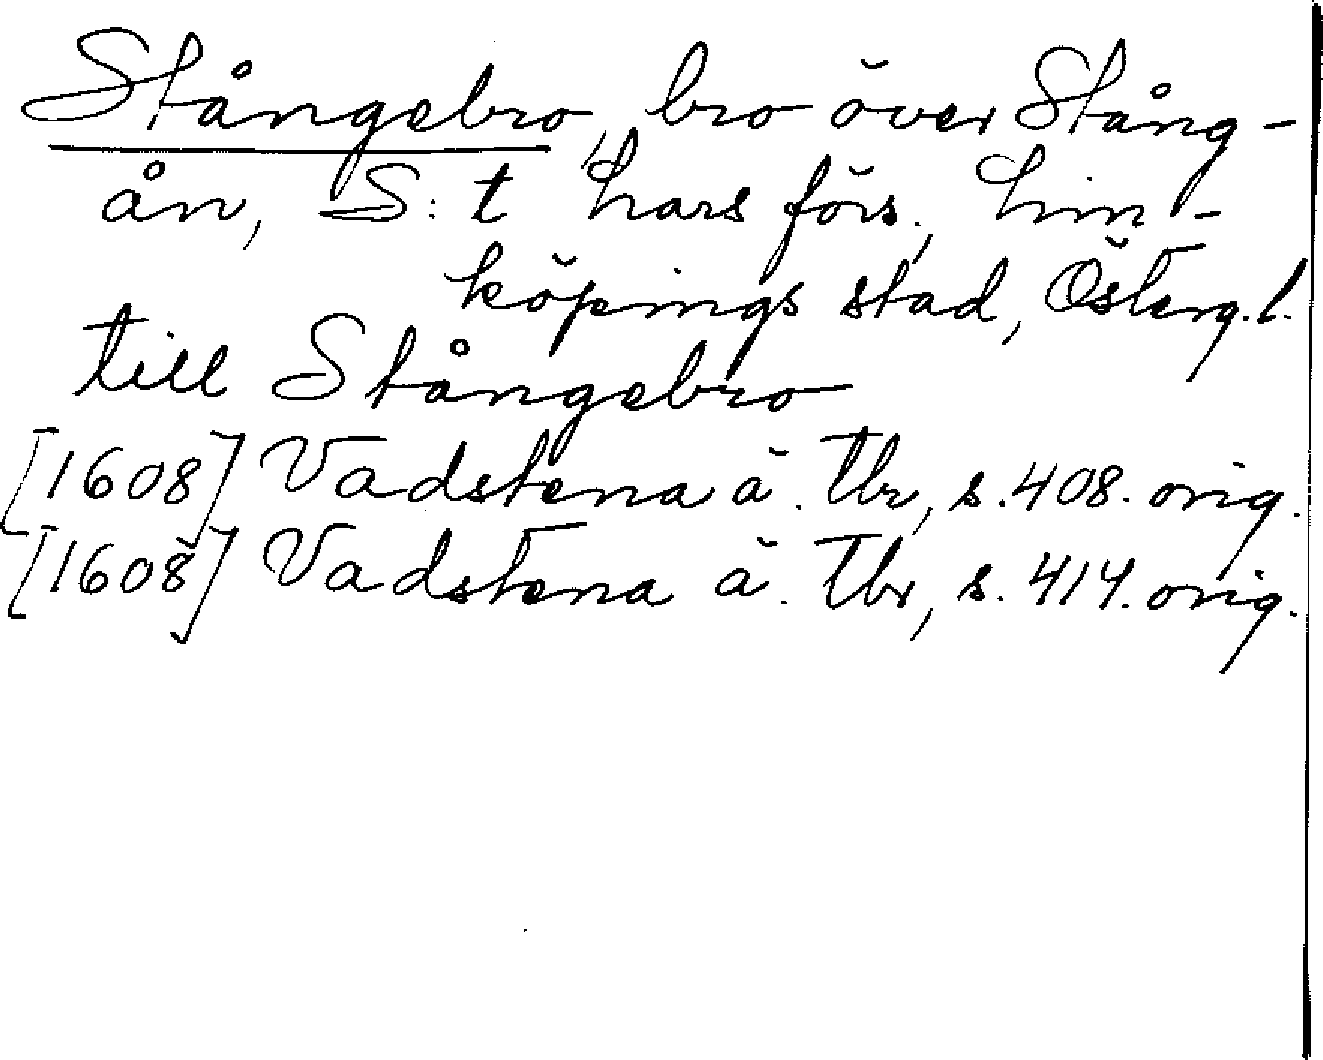 Stångebro, bro över Stång-
ån, S:t Lars förs., Lin-
köpings stad, Österg.l.
till Stångebro
[1608] Vadstena ä. Tbr, s. 408. orig.
[1608] Vadstena ä. Tbr, s. 414. orig.